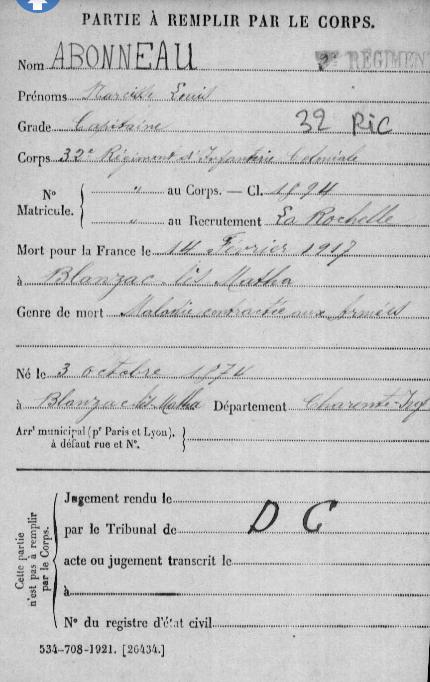 PARTIE À REMPLIR PAR LE CORPS.
Nom ABONNEAU RÉGIMENT
Prénoms Marcille Louis
Grade Capitaine 32 RIC
Corps 32e Régiment d'Infanterie Coloniale
No Matricule. { " au Corps. — Cl. 1894
" au Recrutement La Rochelle
Mort pour la France le 14 Février 1917
à Blanzac lès Matha
Genre de mort Maladie contractée aux Armées
Né le 3 octobre 1874
à Blanzac lès Matha Département Charente-Infre
Arrt municipal (pr Paris et Lyon), à défaut rue et No. }
Cette partie n'est pas à remplir par le Corps. { Jugement rendu le
par le Tribunal de D C
acte ou jugement transcrit le
à
No du registre d'état civil
534-708-1921. [26434.]